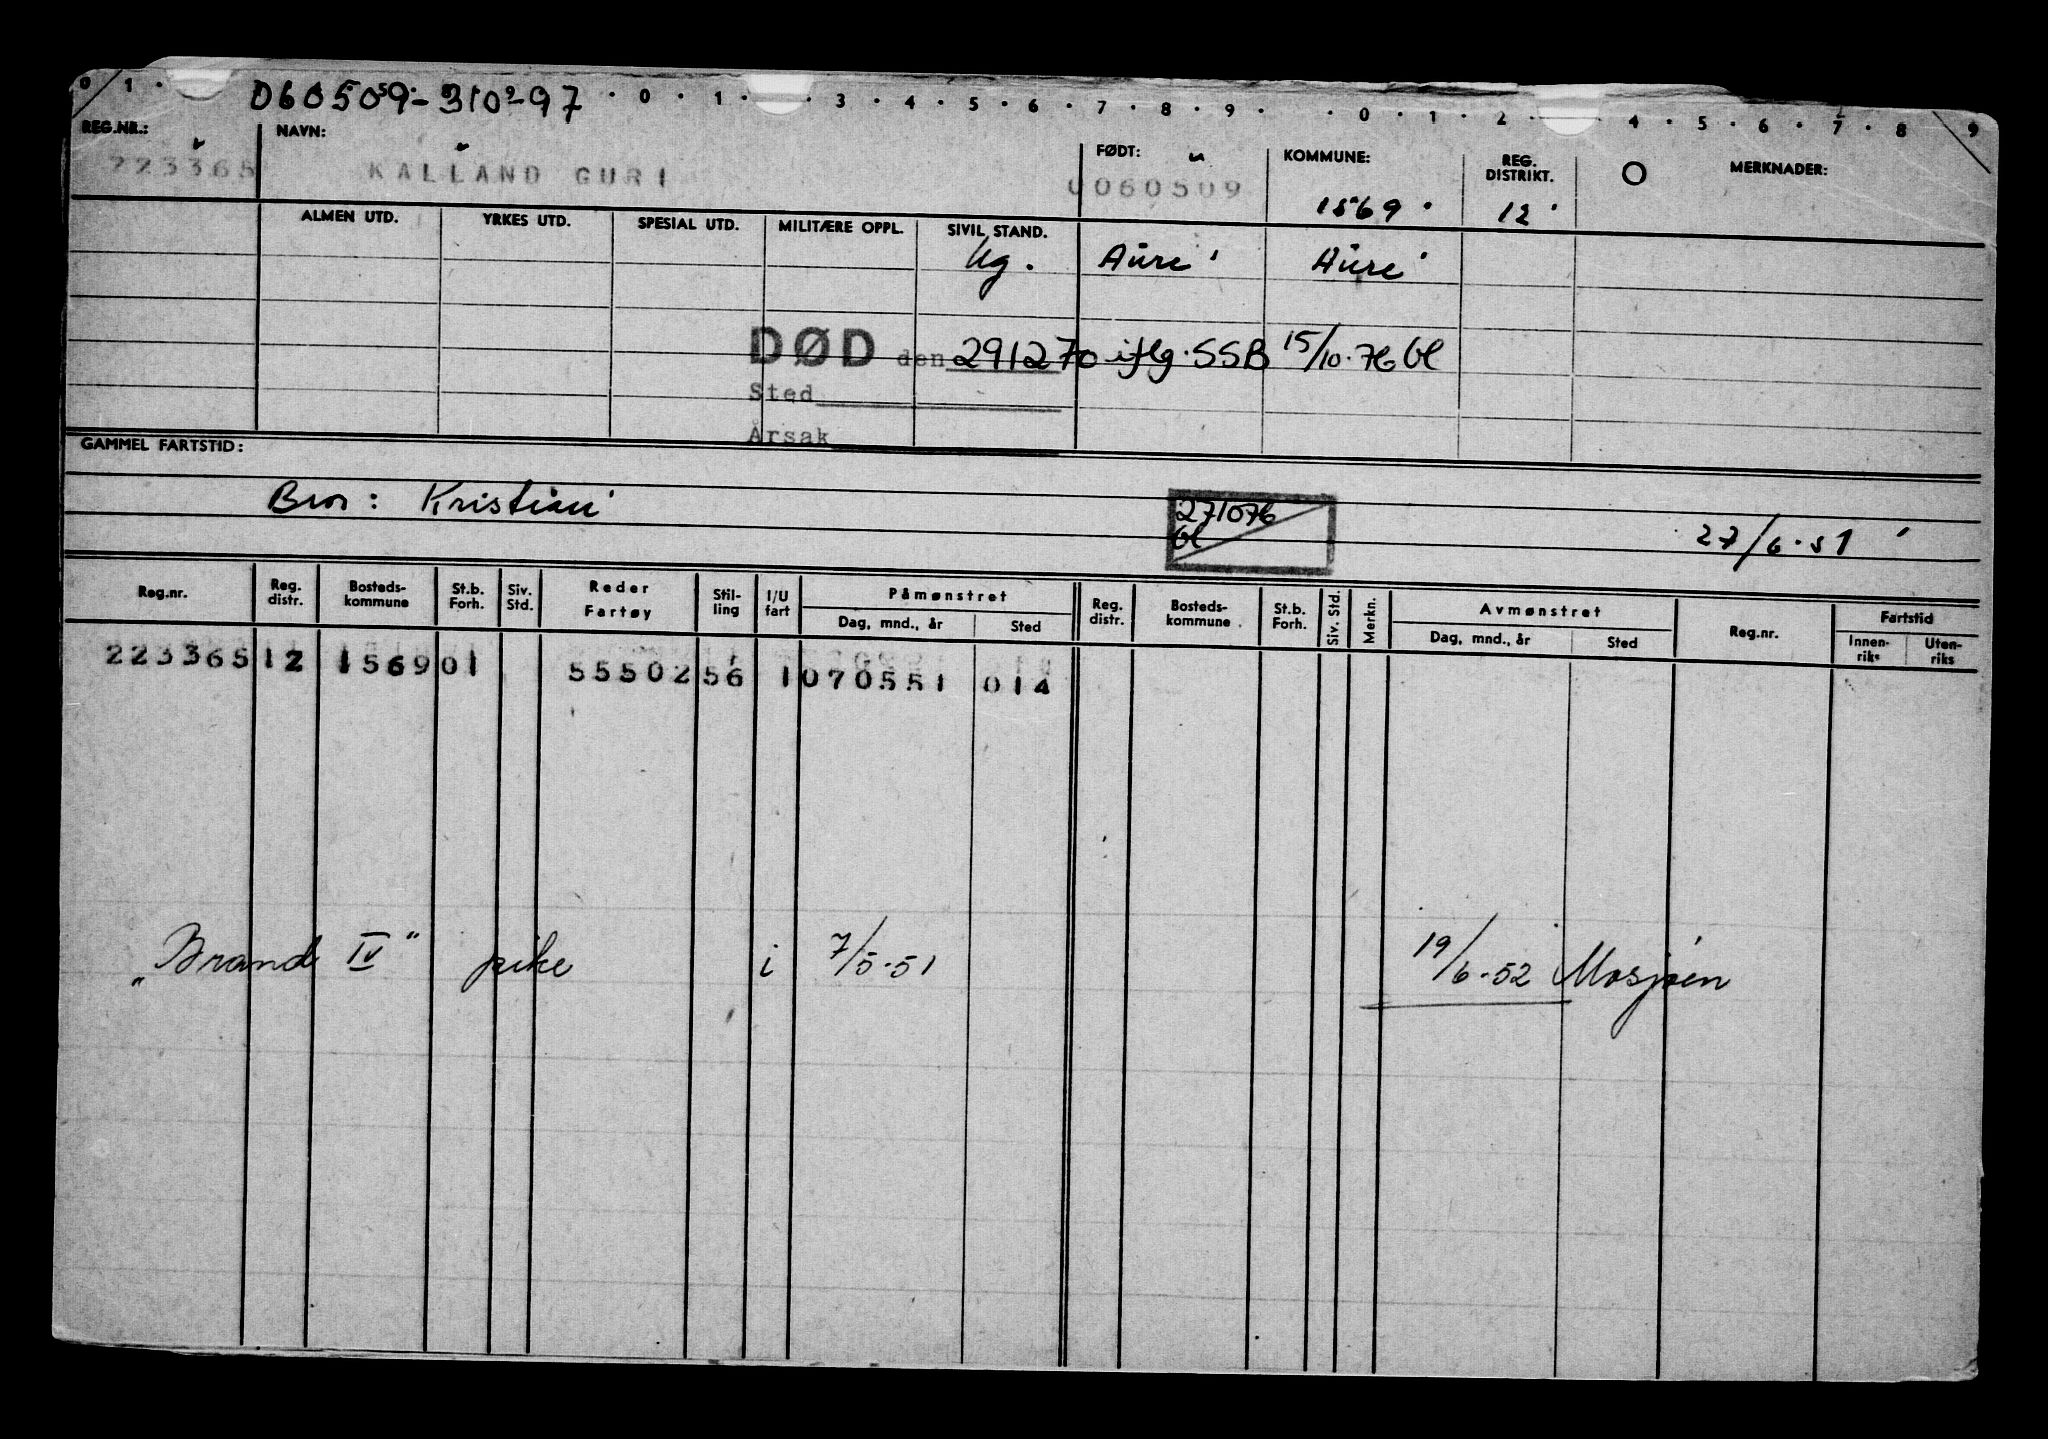 0 1 · 060509-31029 7 · 0 · 1 · · 3 · 4 · 5 · 6 · 7 · 8 · 9 · · 0 · 1 · 2 · · 4 · 5 · 6 · 7 · 8 9
REG.NR.: NAVN: FØDT: KOMMUNE: REG. DISTRIKT. MERKNADER:
223365 KALLAND GURI 0060509 1569 12
ALMEN UTD. YRKES UTD. SPESIAL UTD. MILITÆRE OPPL. SIVIL STAND.
Ug. Aure Aure
DØD den 291270 iflg. SSB 15/10-76 bl
Sted
Årsak
GAMMEL FARTSTID:
Bror: Kristian
271076
bl
27/6-51
Reg.nr. Reg. distr. Bosteds-kommune St.b. Forh. Siv. Std. Reder Fartøy Stil-ling I/U fart Påmønstret Dag, mnd., år Sted Reg. distr. Bosteds-kommune St.b. Forh. Siv. Std. Merkn. Avmønstret Dag, mnd., år Sted Reg.nr. Fartstid Innen-riks Uten-riks
223365 12 1569 01 55502 56 1 070551 014
"Brand IV" pike i 7/5-51 19/6-52 Mosjøen